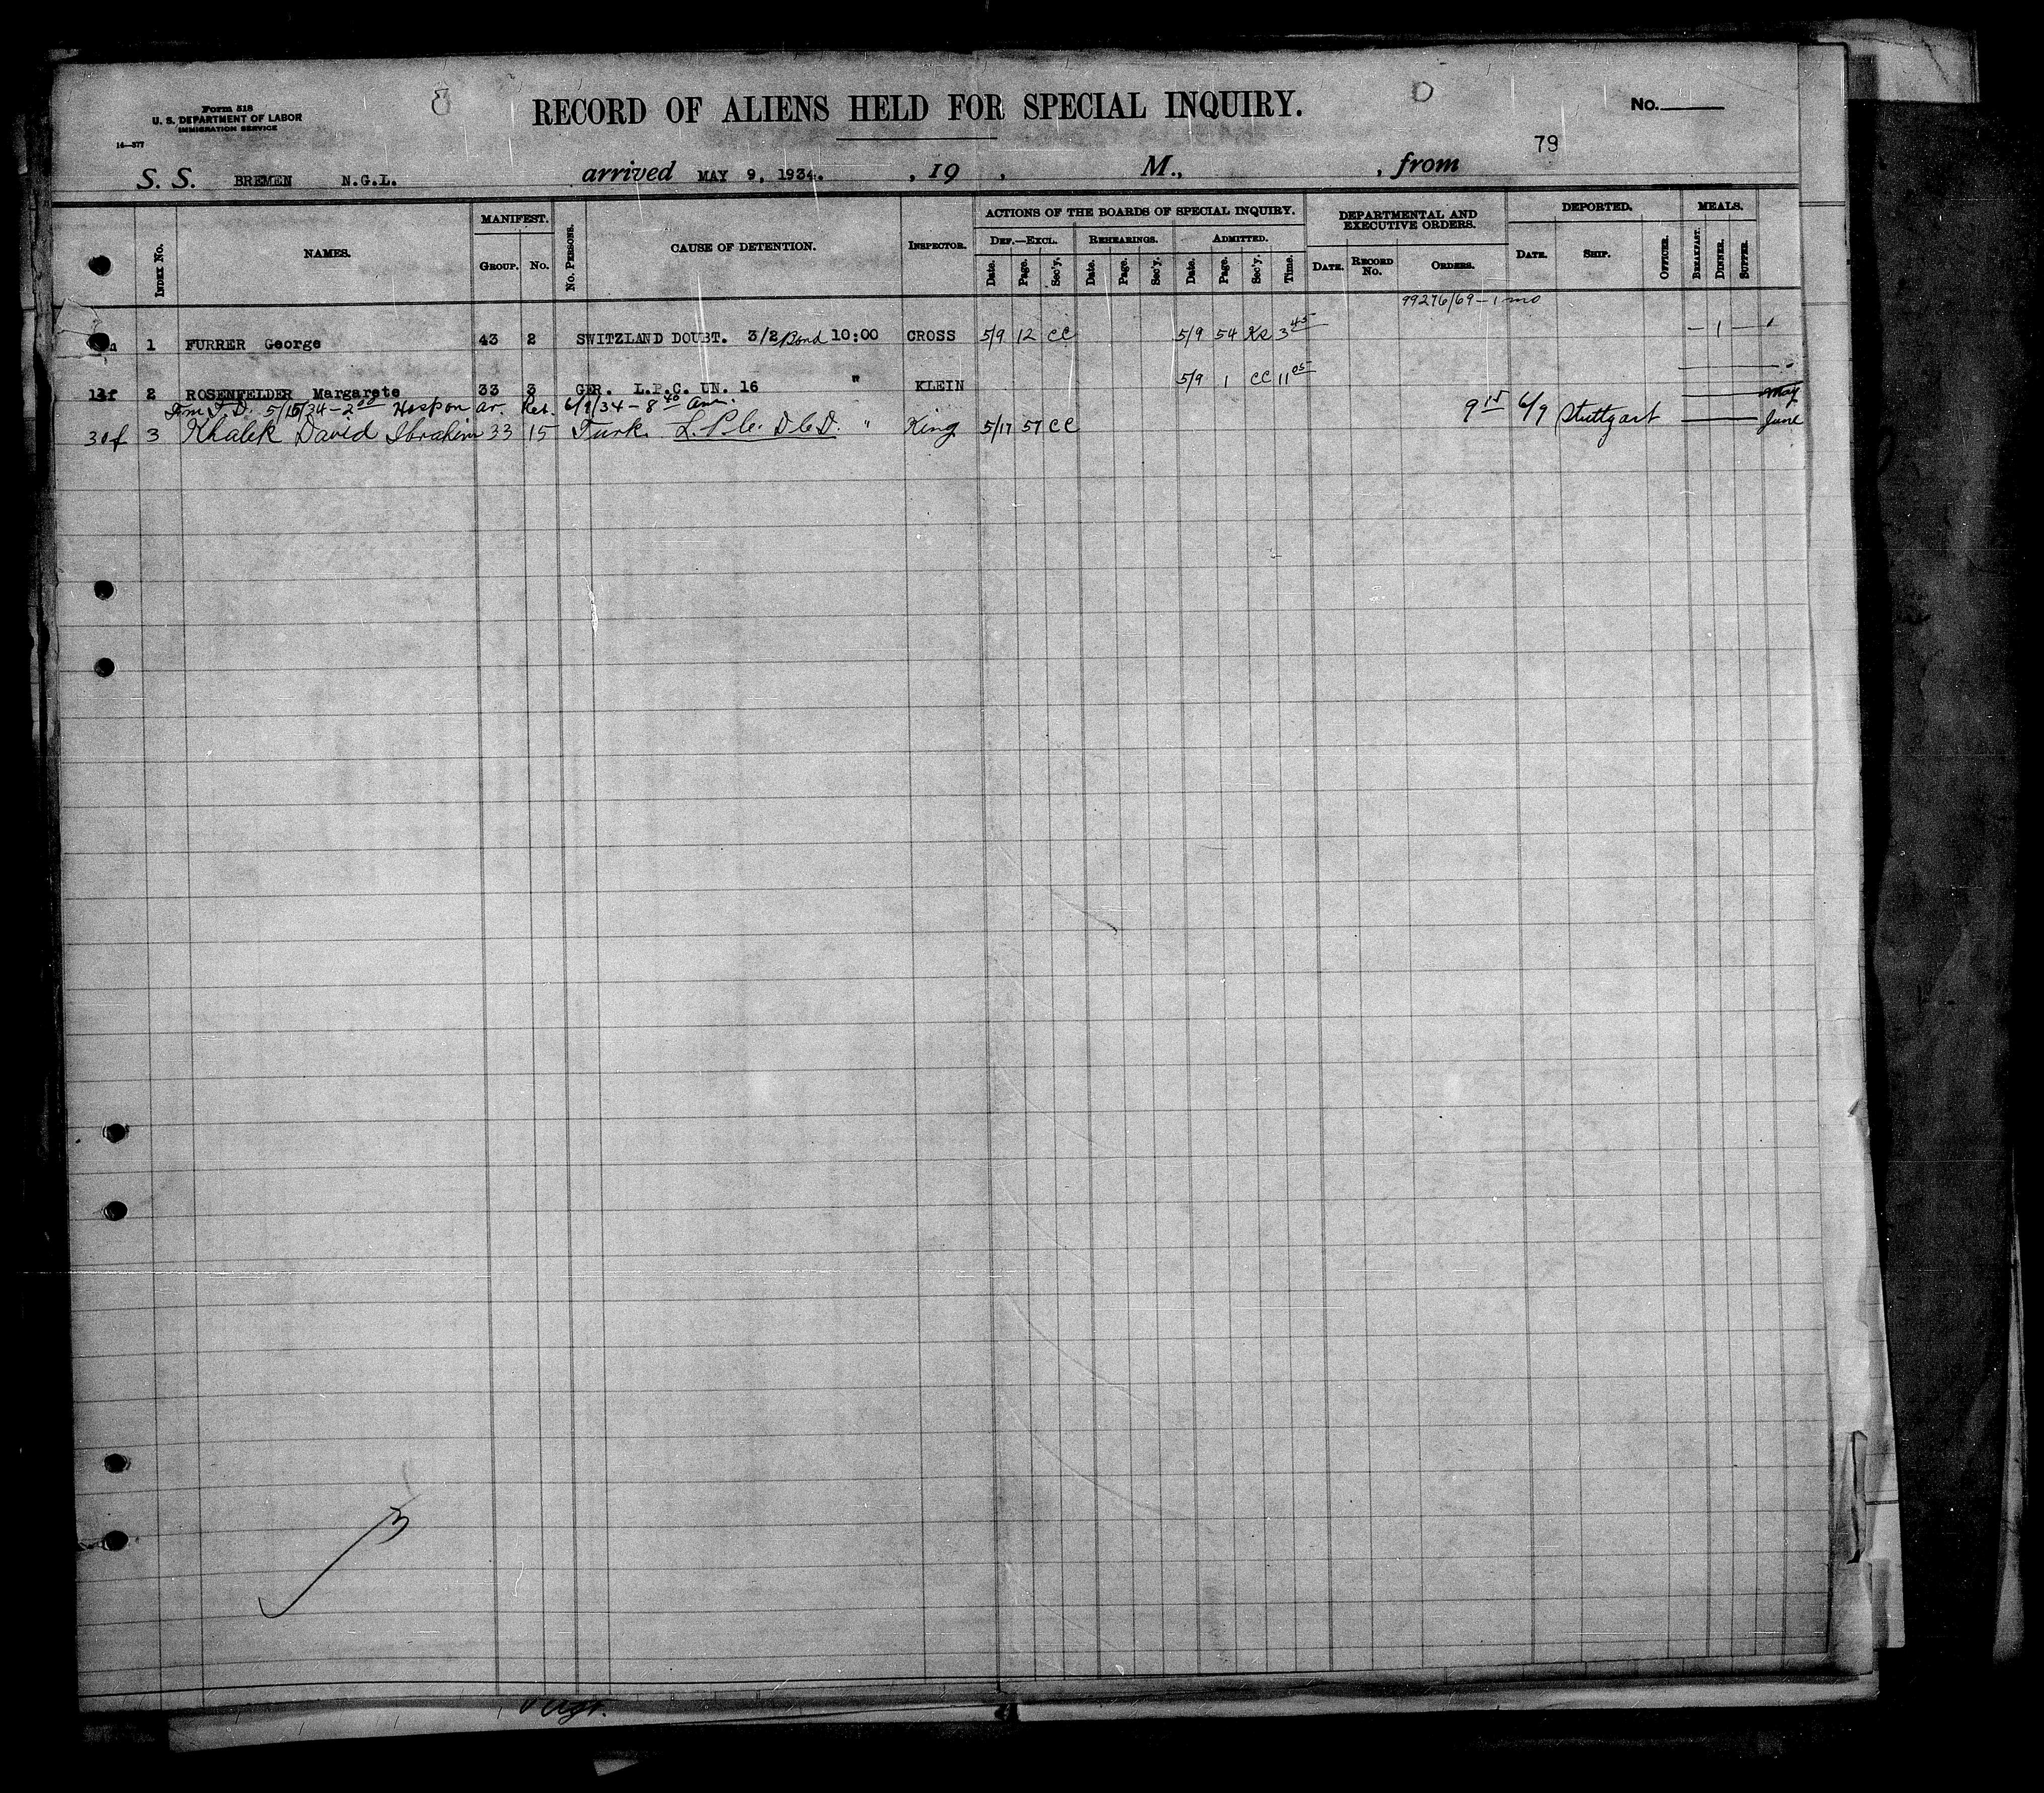 Form 518
U. S. DEPARTMENT OF LABOR
IMMIGRATION SERVICE
14—577
RECORD OF ALIENS HELD FOR SPECIAL INQUIRY.
No.
79
S. S. BREMEN N.G.L. arrived MAY 9, 1934. , 19 , M., , from
INDEX No. NAMES. MANIFEST. GROUP. No. No. PERSONS. CAUSE OF DETENTION. INSPECTOR. ACTIONS OF THE BOARDS OF SPECIAL INQUIRY. DEF.—EXCL. Date. Page. Sec'y. REHEARINGS. Date. Page. Sec'y. ADMITTED. Date. Page. Sec'y. Time. DEPARTMENTAL AND EXECUTIVE ORDERS. DATE. RECORD No. ORDERS. DEPORTED. DATE. SHIP. OFFICER. MEALS. BREAKFAST. DINNER. SUPPER.
99276/69 – 1 mo
1 FURRER George 43 2 SWITZLAND DOUBT. 3/2 Bond 10:00 CROSS 5/9 12 CC 5/9 54 KS 3 45 – 1 –
13f 2 ROSENFELDER Margarete 33 3 GER. L.P.C. UN. 16 " KLEIN 5/9 1 CC 11 05
Fm T.D. 5/15/34 – 2 00 Hosp on ar. Rel. 6/9/34 – 8 40 Am. May
30f 3 Khalek David Ibrahim 33 15 Turk. L.P.C. D.C.D. " King 5/17 57 CC 9 15 6/9 Stuttgart June
3